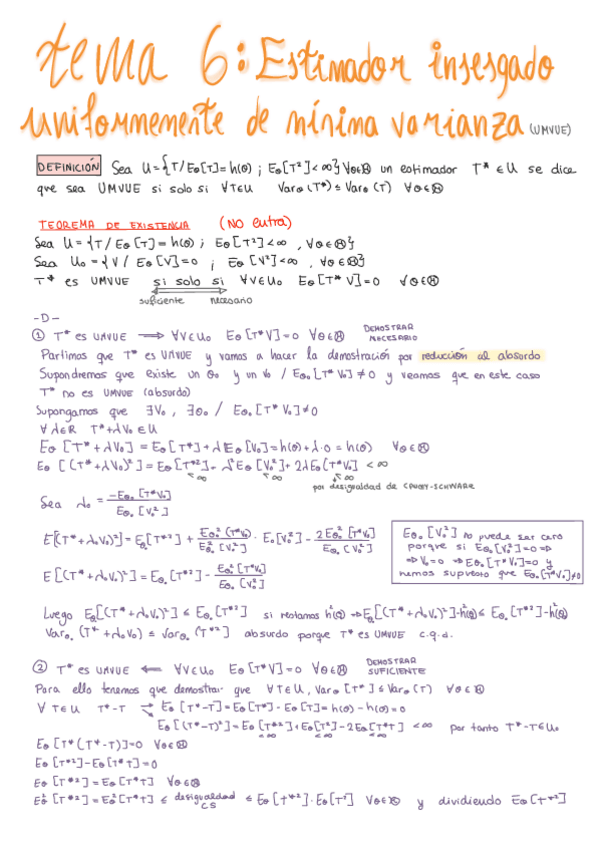 tema 6: Estimador insesgado
uniformemente de mínima varianza (UMVUE)
DEFINICIÓN Sea U={T/Eθ[T]=h(θ); Eθ[T²]<∞} ∀θ∈Θ un estimador T*∈U se dice
que sea UMVUE si solo si ∀T∈U Varθ(T*)≤Varθ(T) ∀θ∈Θ
TEOREMA DE EXISTENCIA (NO entra)
Sea U={T/Eθ[T]=h(θ); Eθ[T²]<∞, ∀θ∈Θ}
Sea U₀={V/Eθ[V]=0; Eθ[V²]<∞, ∀θ∈Θ}
T* es UMVUE si solo si ∀V∈U₀ Eθ[T*V]=0 ∀θ∈Θ
suficiente necesario
-D-
① T* es UMVUE ⟹ ∀V∈U₀ Eθ[T*V]=0 ∀θ∈Θ DEMOSTRAR NECESARIO
Partimos que T* es UMVUE y vamos a hacer la demostración por reducción al absurdo
Supondremos que existe un θ₀ y un V₀ / Eθ₀[T*V₀]≠0 y veamos que en este caso
T* no es UMVUE (absurdo)
Supongamos que ∃V₀, ∃θ₀ / Eθ₀[T*V₀]≠0
∀λ∈R T*+λV₀∈U
Eθ[T*+λV₀]=Eθ[T*]+λEθ[V₀]=h(θ)+λ·0=h(θ) ∀θ∈Θ
Eθ[(T*+λV₀)²]=Eθ[T*²]+λ²Eθ[V₀²]+2λEθ[T*V₀] <∞
<∞ <∞ <∞
por desigualdad de CAUCHY-SCHWARE
Sea λ₀ = -Eθ₀[T*V₀] / Eθ₀[V₀²]
E[(T*+λ₀V₀)²]=Eθ₀[T*²]+ Eθ₀²(T*V₀)/Eθ₀²[V₀²] · Eθ₀[V₀²] - 2Eθ₀²[T*V₀]/Eθ₀[V₀²]
E[(T*+λ₀V₀)²]=Eθ₀[T*²] - Eθ₀²[T*V₀]/Eθ₀[V₀²]
Eθ₀[V₀²] no puede ser cero
porque si Eθ₀[V₀²]=0⇒
⇒V₀=0 ⇒Eθ₀[T*V₀]=0 y
hemos supuesto que Eθ₀[T*V₀]≠0
Luego Eθ₀[(T*+λ₀V₀)²] ≤ Eθ₀[T*²] si restamos h²(θ) ⇒Eθ₀[(T*+λ₀V₀)²]-h²(θ)≤ Eθ₀[T*²]-h²(θ)
Varθ₀(T*+λ₀V₀) ≤ Varθ₀(T*²] absurdo porque T* es UMVUE c.q.d.
② T* es UMVUE ⟸ ∀V∈U₀ Eθ[T*V]=0 ∀θ∈Θ DEMOSTRAR SUFICIENTE
Para ello tenemos que demostrar que ∀T∈U, Varθ[T*]≤Varθ(T) ∀θ∈Θ
∀T∈U T*-T → Eθ[T*-T]=Eθ[T*]-Eθ[T]=h(θ)-h(θ)=0
Eθ[(T*-T)²]=Eθ[T*²]+Eθ[T²]-2Eθ[T*T] <∞ por tanto T*-T∈U₀
<∞ <∞ <∞
Eθ[T*(T*-T)]=0 ∀θ∈Θ
Eθ[T*²]-Eθ[T*T]=0
Eθ[T*²]=Eθ[T*T] ∀θ∈Θ
Eθ²[T*²]=Eθ²[T*T] ≤ desigualdad CS ≤ Eθ[T*²]·Eθ[T²] ∀θ∈Θ y dividiendo Eθ[T*²]